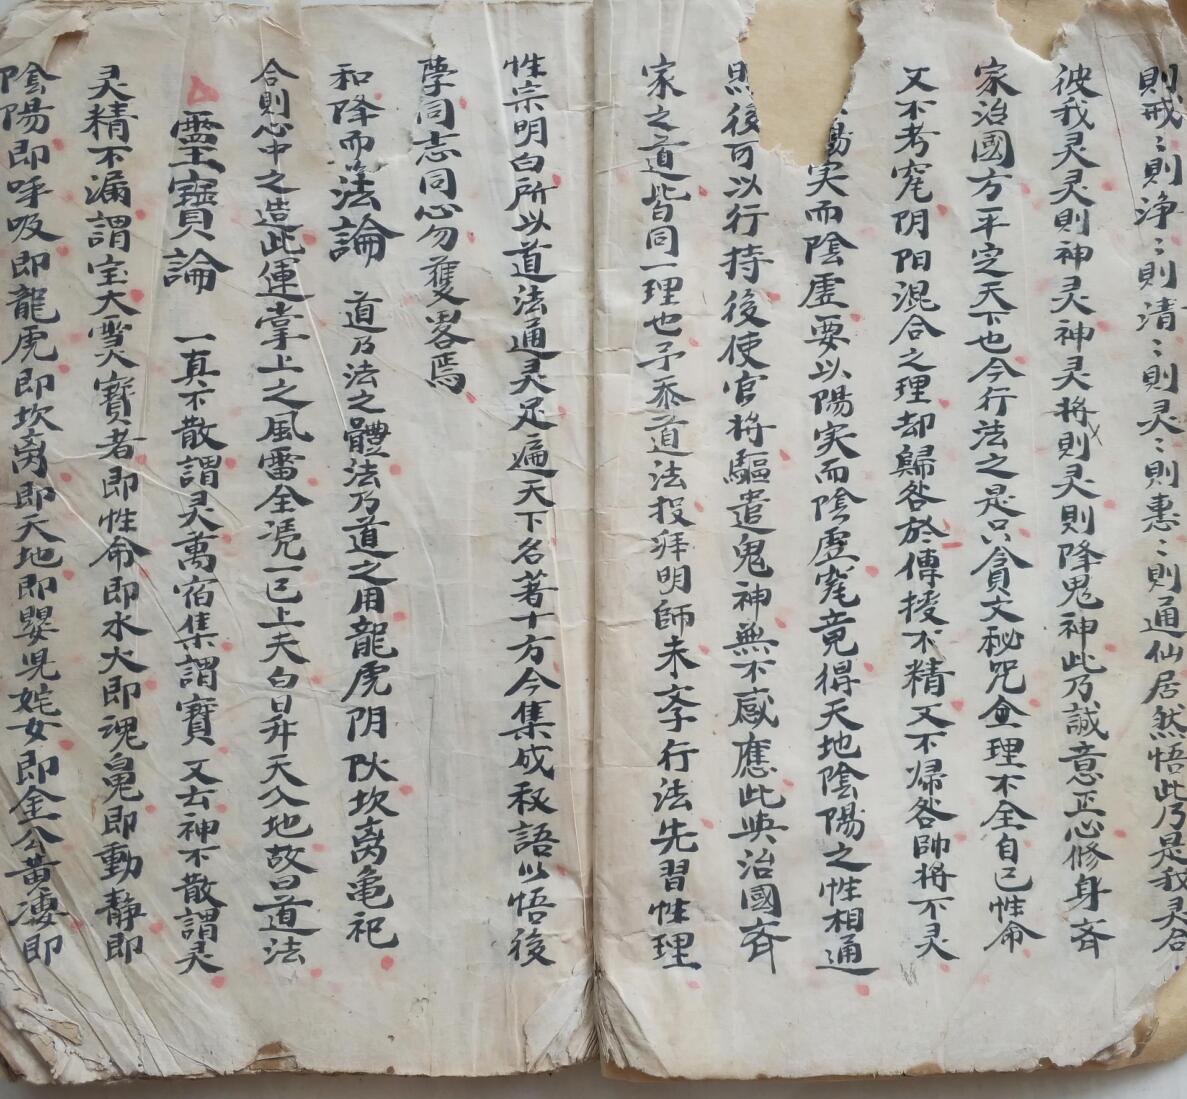 則戒〻則净〻則清〻則灵〻則惠〻則通仙居然悟此乃是我灵合
彼我灵灵則神灵神灵将則灵則降鬼神此乃誠意正心修身斉
家治國方平定天下也今行法之是只貪文秘咒僉理不全自己性命
又不考窕阴阳混合之理却歸咎於傳授不精又不㷌咎帥将不灵
陽实而陰虚要以陽实而陰虚窕竟得天地陰陽之性相通
照後可以行持後使官将驅遣鬼神無不感應此與治國斉
家之道皆同一理也予忝道法投拜明師未斈行法先習性理
性宗明白所以道法通灵足遍天下名著十方今集成秘語以悟後
學同志同心勿䕶畧焉
和降而
法論 道乃法之體法乃道之用龍虎阴阦坎离亀祀
合則心中之造此運掌上之風雷全凴一己上夫白日昇天入地故曰道法
靈寶論 一真不散謂灵萬宿集謂寳又云神不散謂灵
灵精不漏謂宝大灵寳者即性命即水火即魂鬼即動靜即
陰陽即呼吸即龍虎即坎离即天地即嬰児姹女即金公黃溇即